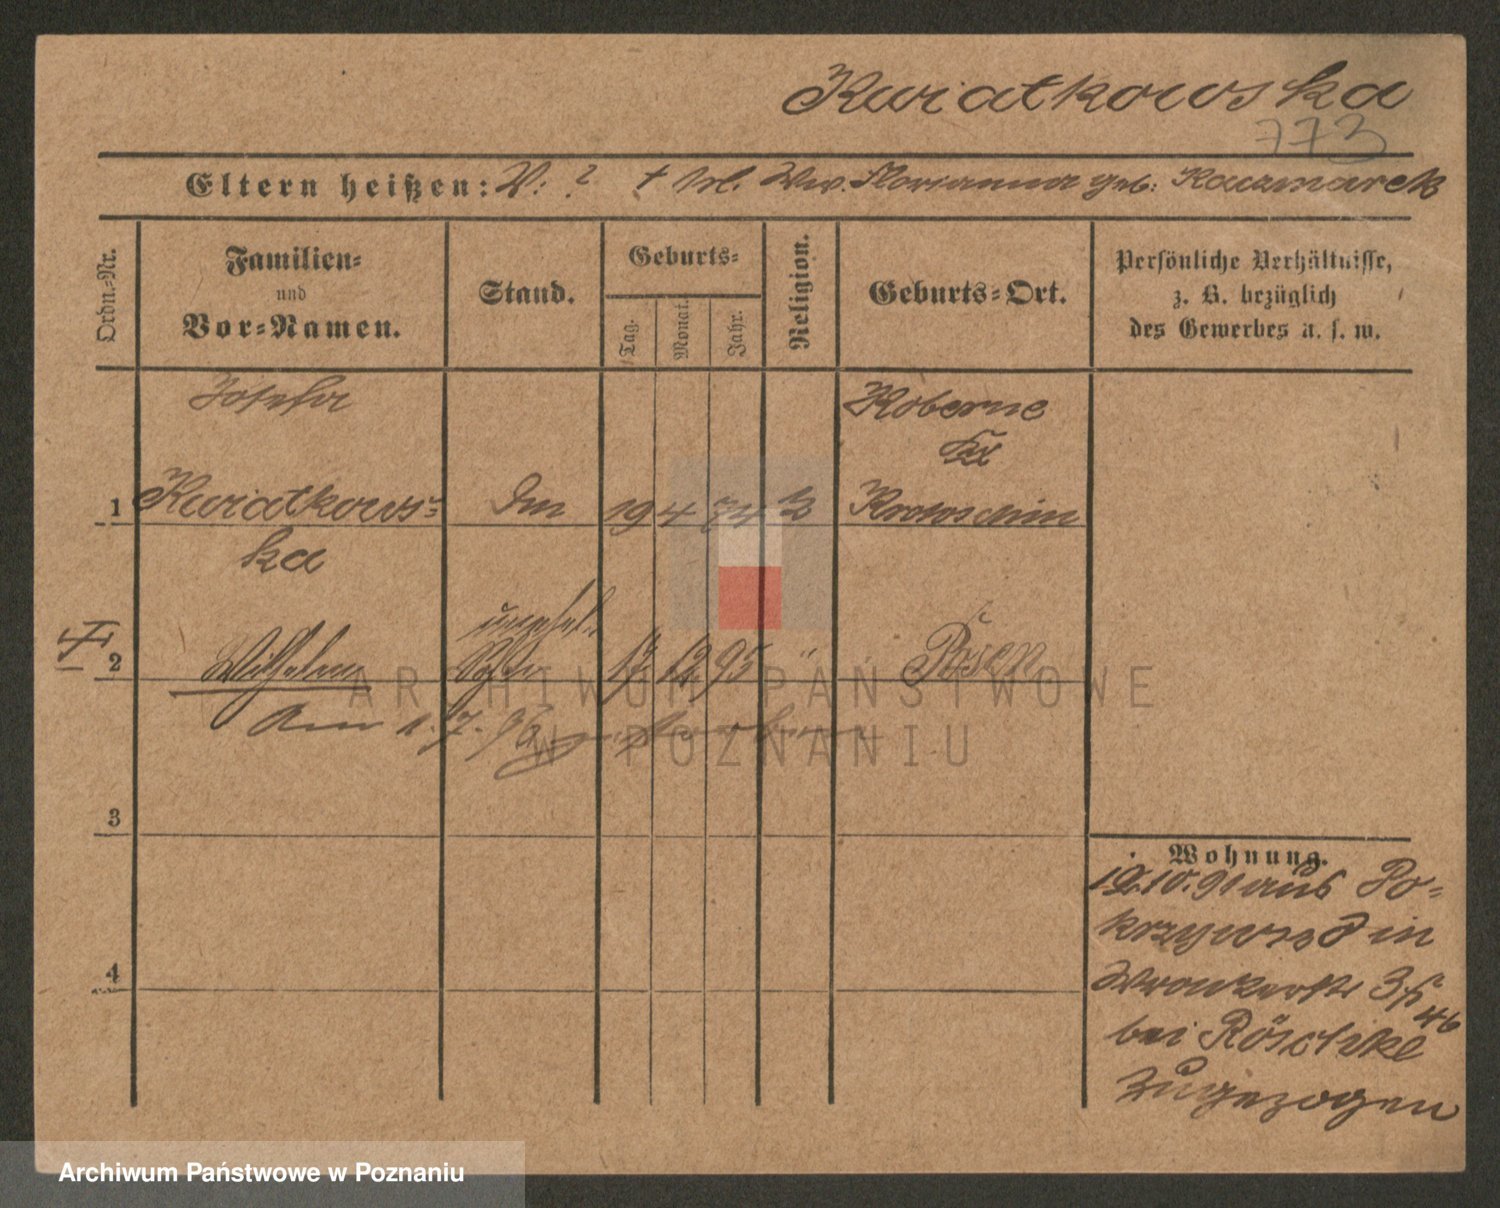 Kwiatkowska
773
Eltern heißen: V: ? † Ww. Florianna geb: Kaczmarek
Ordn.-Nr.
Familien-
und
Vor-Namen.
Stand.
Geburts-
Tag.
Monat.
Jahr.
Religion.
Geburts-Ort.
Persönliche Verhältnisse,
z. B. bezüglich
des Gewerbes u. s. w.
Josefa
Koberne
Kr
1 Kwiatkows- 19 4 74 Krotoschin
ka
unehel.
2 Wilhelm Sohn 17 12 95 " Posen
Am 1.7.96 gestorben
3
4
Wohnung.
19.10.91 aus Po-
krzywno in
Wronkerstr 3
46
bei Röschke
zugezogen
ARCHIWUM PAŃSTWOWE
W POZNANIU
Archiwum Państwowe w Poznaniu